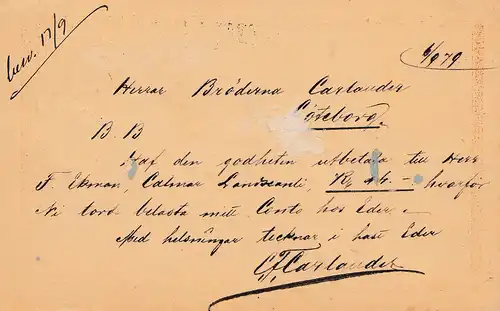 besv. 17/9
6/9 79
Herrar Bröderna Carlander
Göteborg.
B. B
Haf den godheten utbetala till Herr
F. Ekman, Calmar hvarför
Ni tord belasta mitt Conto hos Eder.
Med helsningar tecknar i hast Eder
Carlander